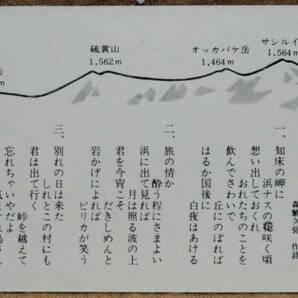 硫黄山
1,562m
オッカバケ岳
1,464m
サシルイ
1,564m
岳
森繁久弥 作詩
一、知床の岬に
浜ナスの花咲く頃
想い出しておくれ
おれたちのことを
飲んでさわいで
丘にのぼれば
はるか国後に
白夜はあける
二、旅の情か
酔う程にさまよい
浜に出て見れば
月は照る波の上
君を今宵こそ
だきしめんと
岩かげによれば
ピリカが笑う
三、別れの日は来た
しれとこの村にも
君は出て行く
峠を越えて
忘れちゃいやだよ